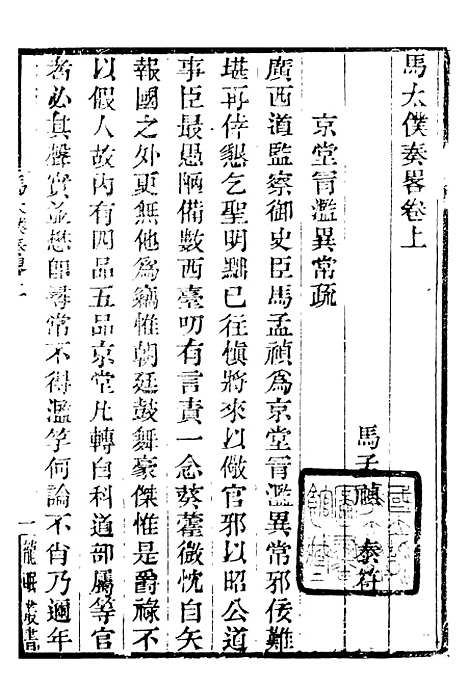 馬太僕奏畧卷上
馬孟禎 泰符
京堂冐濫異常疏
廣西道監察御史臣馬孟禎爲京堂冐濫異常邪佞難
堪再倖懇乞聖明黜已往愼將來以儆官邪以昭公道
事臣最愚陋備數西臺叨有言責一念葵藿微忱自矢
報國之外更無他爲竊惟朝廷鼓舞豪傑惟是爵祿不
以假人故內有四品五品京堂凡轉自科道部屬等官
者必其聲實並懋卽尋常不得濫竽何論不肖乃邇年
馬太僕奏畧上
一
龍眠叢書